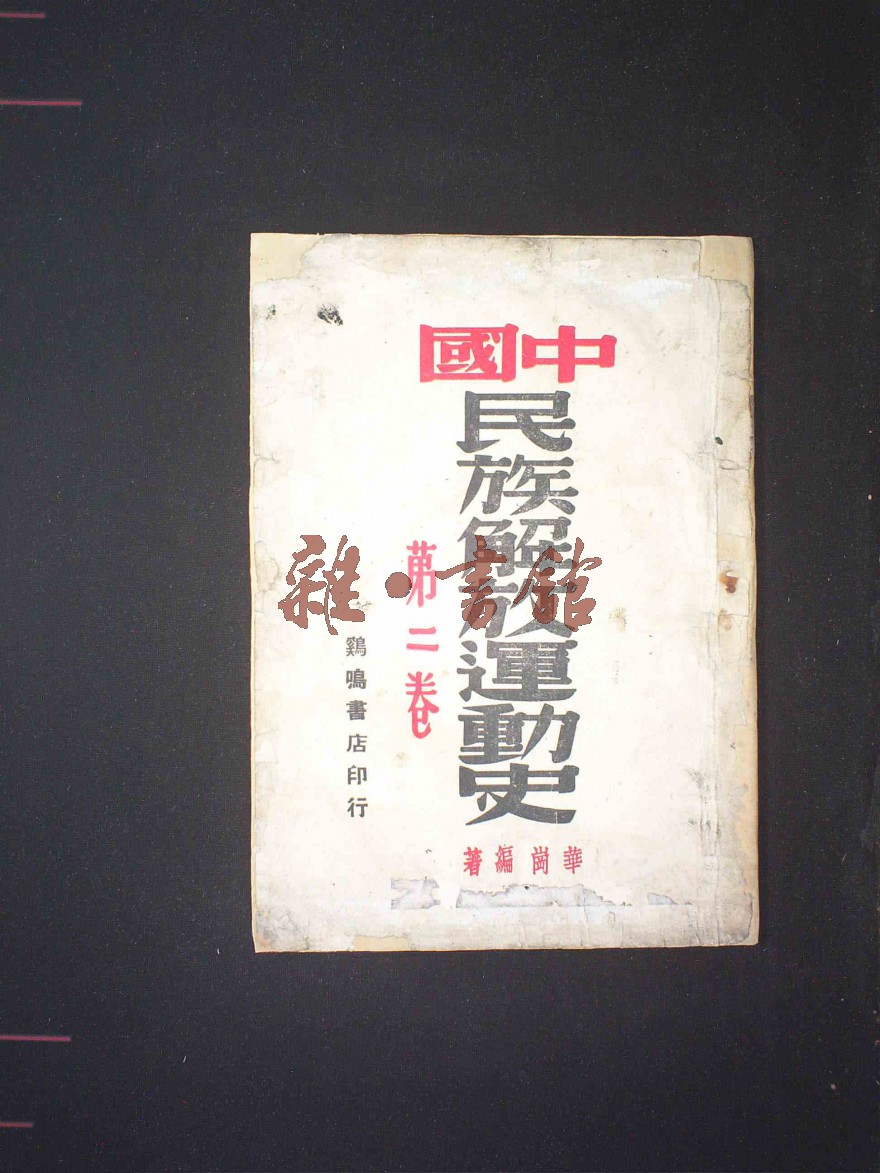 中國
民族解放運動史
第二卷
華崗編著
鷄鳴書店印行
雜·書館